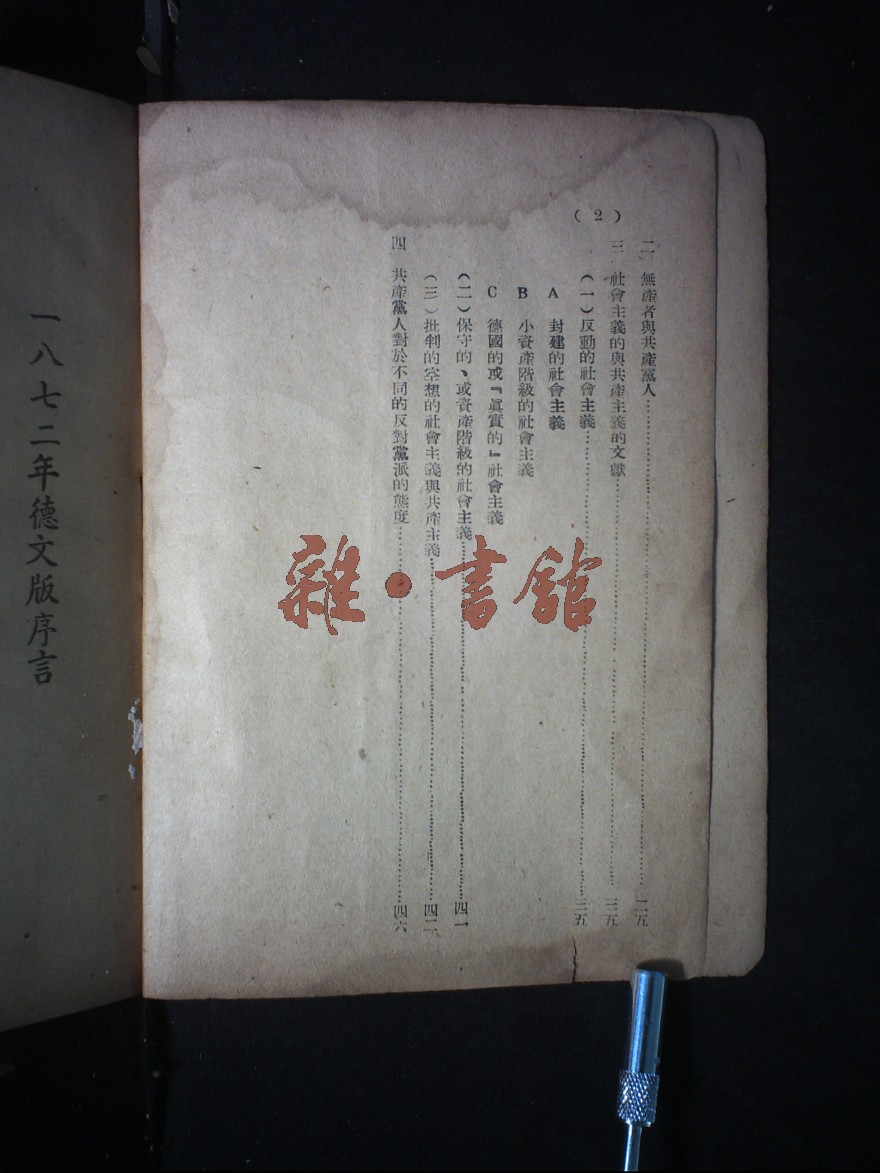 (2)
二　無產者與共產黨人…………二五
三　社會主義的與共產主義的文獻…………三五
(一)反動的社會主義…………三五
A　封建的社會主義
B　小資產階級的社會主義
C　德國的或『眞實的』社會主義
(二)保守的、或資產階級的社會主義…………四一
(三)批判的空想的社會主義與共產主義…………四二
四　共產黨人對於不同的反對黨派的態度…………四六
一八七二年德文版序言
雜·書館